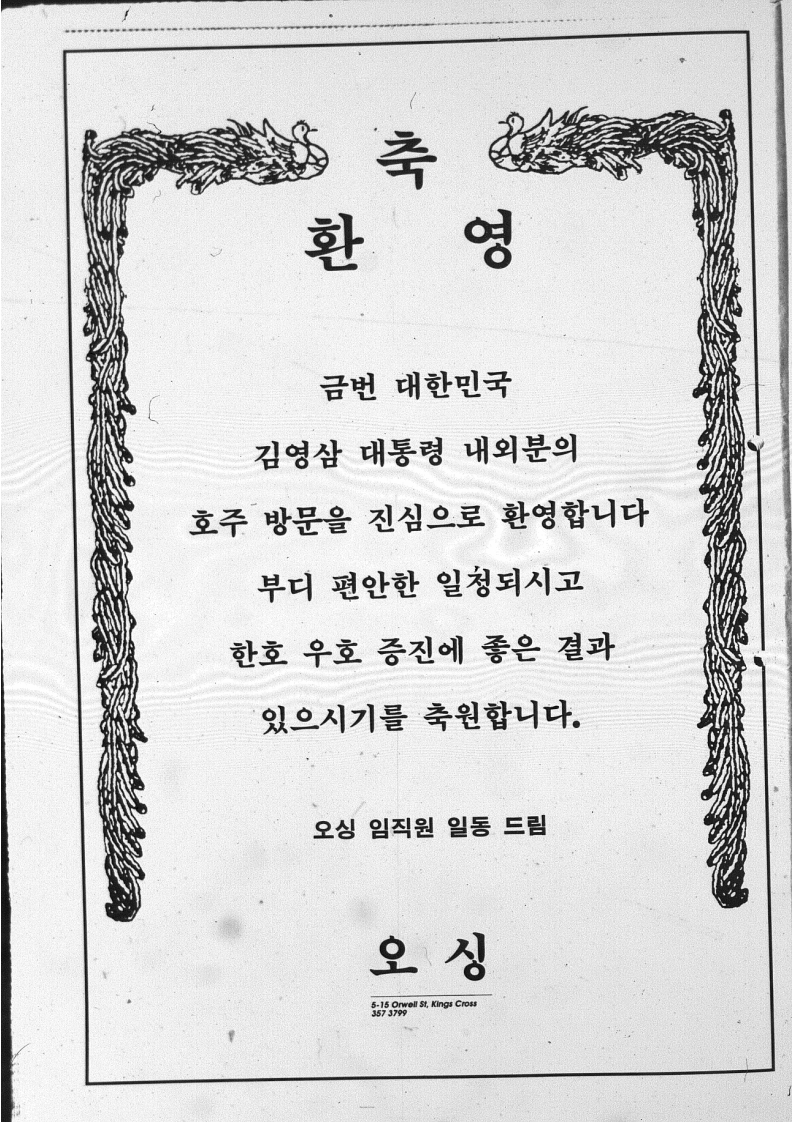 축
환 영
금번 대한민국
김영삼 대통령 내외분의
호주 방문을 진심으로 환영합니다
부디 편안한 일정되시고
한호 우호 증진에 좋은 결과
있으시기를 축원합니다.
오싱 임직원 일동 드림
오 싱
5-15 Orwell St, Kings Cross
357 3799